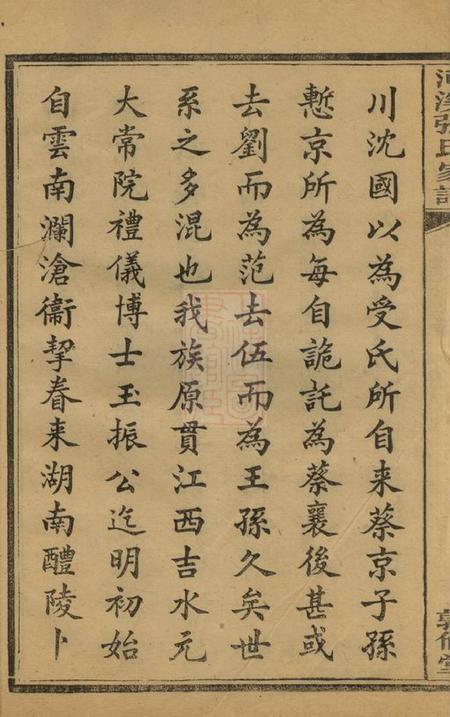 川沈國以為受氏所自来蔡京子孫
慙京所為每自詭託為蔡襄後甚或
去劉而為范去伍而為王孫久矣世
系之多混也我族原貫江西吉水元
大常院禮儀博士玉振公迄明初始
自雲南瀾滄衞挈眷来湖南醴陵卜